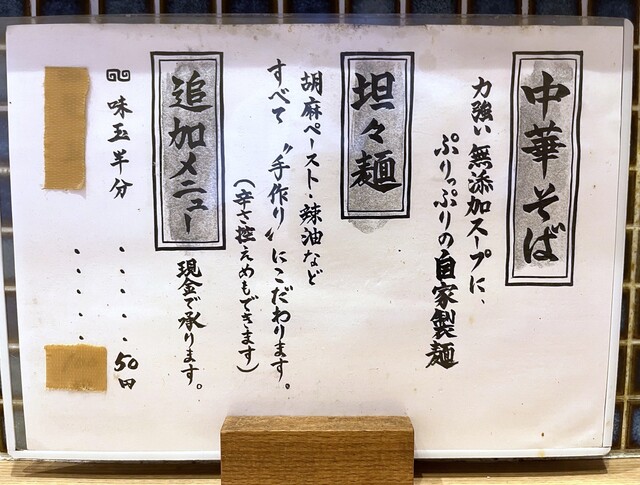 中華そば
力強い無添加スープに、
ぷりっぷりの自家製麺
坦々麺
胡麻ペースト・辣油など
すべて〝手作り〟にこだわります。
(辛さ控えめもできます)
追加メニュー
現金で承ります。
味玉半分・・・・・50円
・・・・・